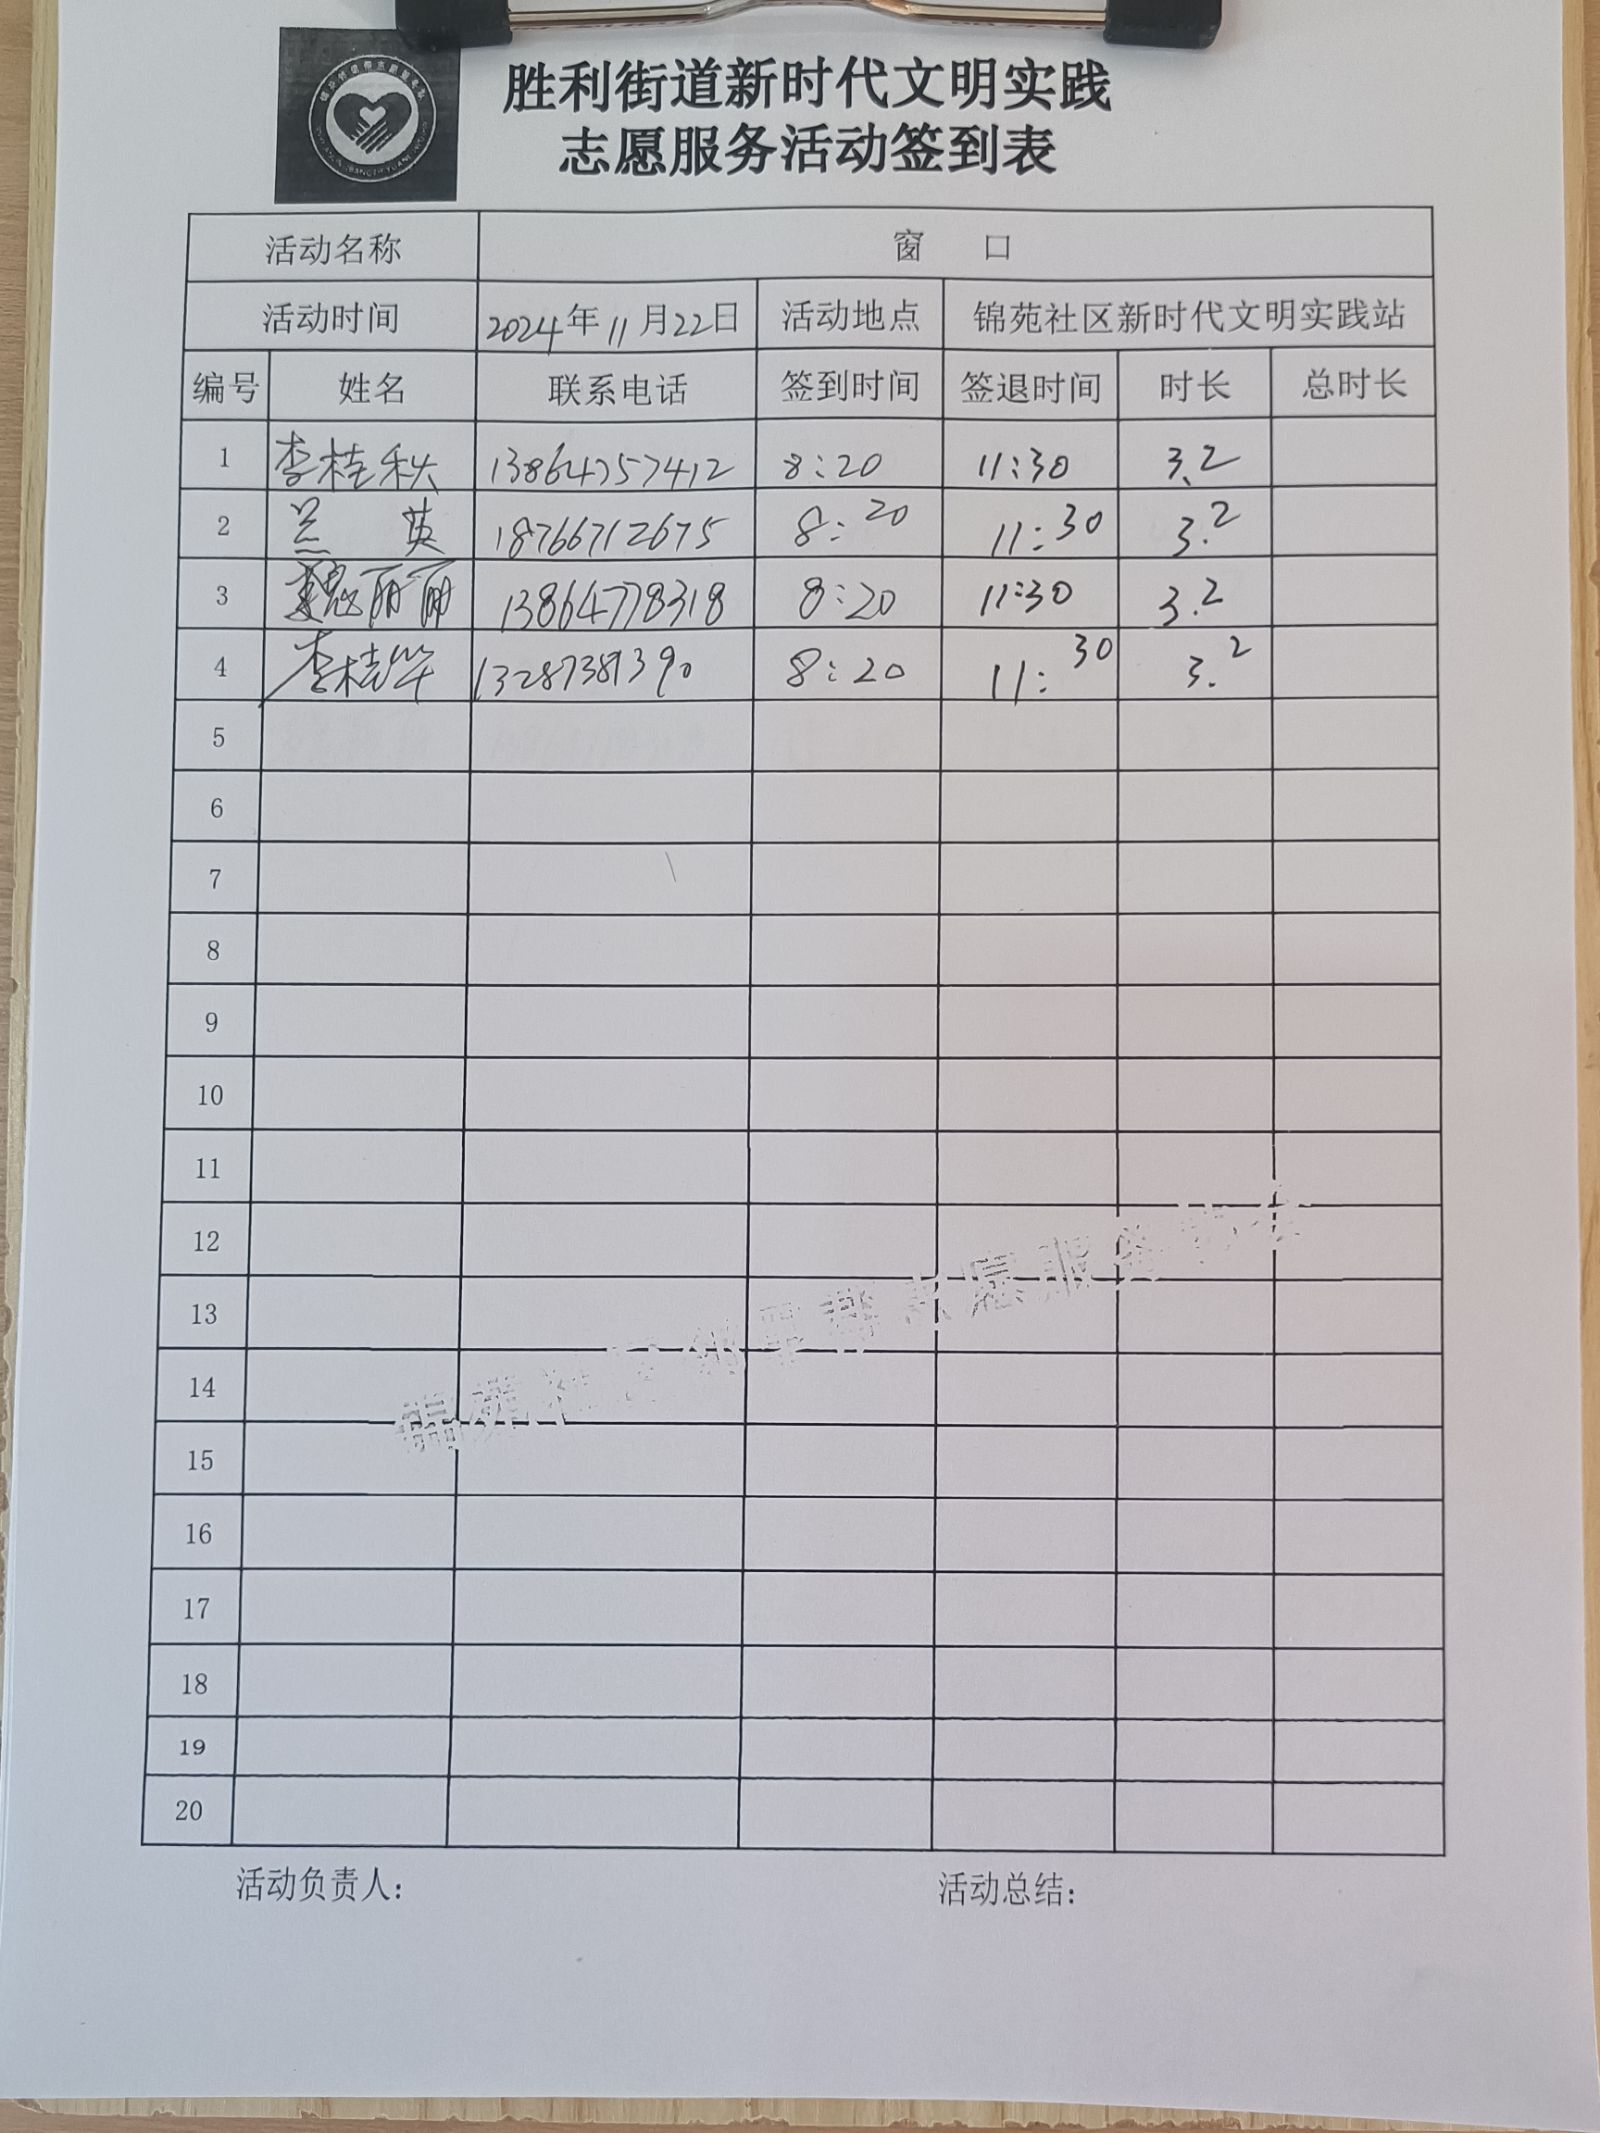 胜利街道新时代文明实践
志愿服务活动签到表
活动名称 窗 口
活动时间 2024年11月22日 活动地点 锦苑社区新时代文明实践站
编号 姓名 联系电话 签到时间 签退时间 时长 总时长
1 李桂秋 13864757412 8:20 11:30 3.2
2 兰 英 18766712675 8:20 11:30 3.2
3 魏丽丽 13864778318 8:20 11:30 3.2
4 李桂华 13287381390 8:20 11:30 3.2
5
6
7
8
9
10
11
12
13
14
15
16
17
18
19
20
活动负责人:
活动总结: